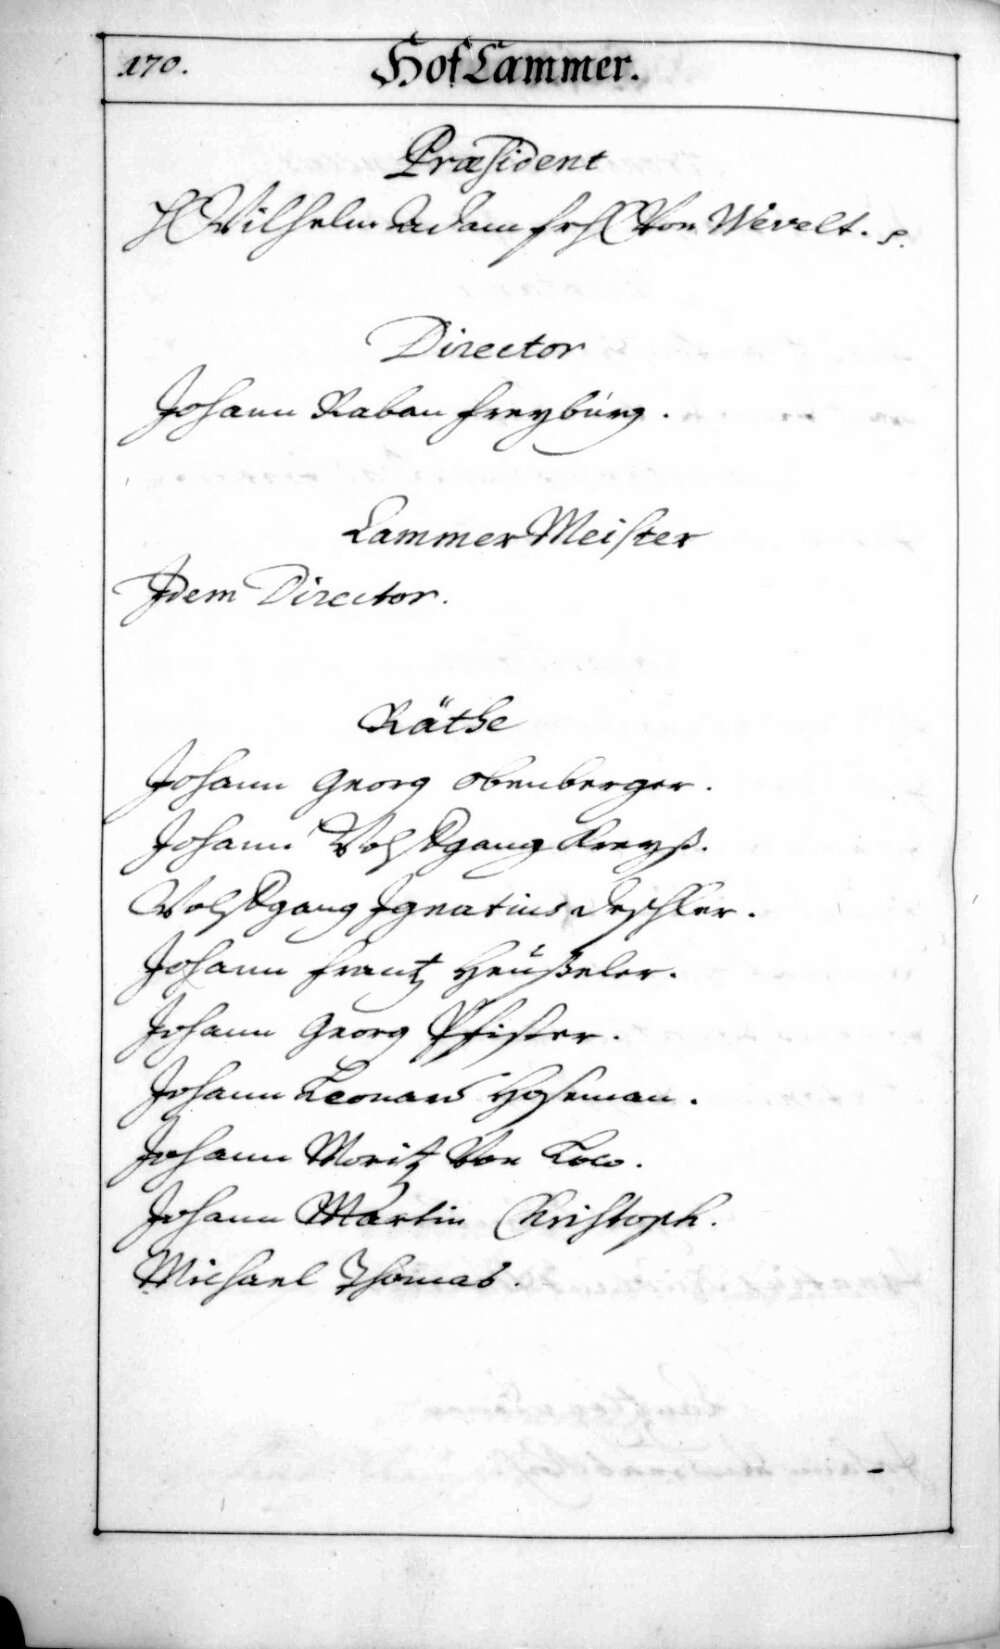 170.
HofCammer.
Præsident
H Wilhelm Adam frh Von Wevelt.
Director
Johann Raban Freyburg.
CammerMeister
Idem Director.
Räthe
Johann Georg Obenberger.
Johann Wolfgang Kreyß.
Wolfgang Ignatius Deschler.
Johann Frantz Heüßeler.
Johann Georg Pfister.
Johann Leonard Hoseman.
Johann Moritz Von Loco.
Johann Martin Christoph.
Michael Thomas.